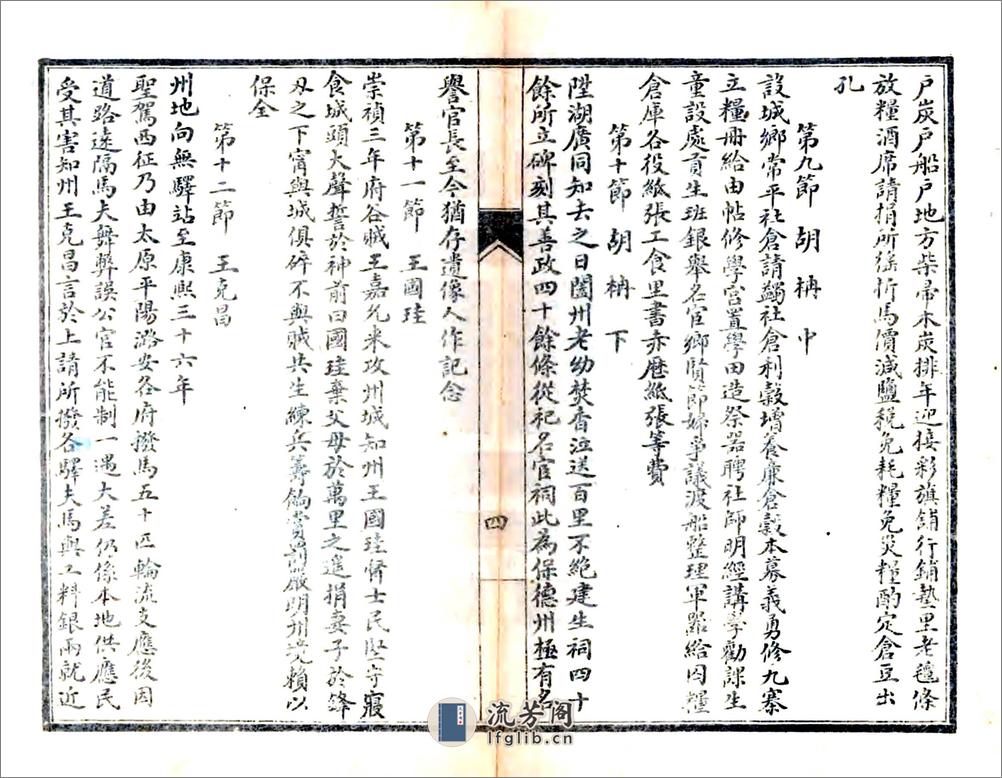 戶炭戶船戶地方柴帚木炭排年迎接彩旗舖行鋪墊里老氊條
放糧酒席請捐所孫行馬價減鹽稅免耗糧免災糧酌定倉豆出
孔
第九節 胡枏中
設城鄉常平社倉請蠲社倉利穀增養廉倉穀本募義勇修九寨
立糧册給由帖修學宮置學田造祭器聘社師明經講學勸課生
童設處貢生班銀舉名宦鄉賢節婦爭議渡船整理軍器給囚糧
倉庫各役紙張工食里書赤歷紙張等費
第十節 胡枏下
陞湖廣同知去之日闔州老幼焚香泣送百里不絶建生祠四十
餘所立碑刻其善政四十餘條從祀名宦祠此為保德州極有名
四
譽官長至今猶存遺像人作記念
第十一節 王國珪
崇禎三年府谷賊王嘉允來攻州城知州王國珪督士民堅守寢
食城頭大聲誓於神前曰國珪棄父母於萬里之進捐妻子於鋒
刄之下甯與城俱碎不與賊共生練兵籌餉賞罰嚴明州境賴以
保全
第十二節 王克昌
州地向無驛站至康熙三十六年
聖駕西征乃由太原平陽潞安各府撥馬五十匹輪流支應後因
道路遠隔馬夫舞弊誤公官不能制一遇大差仍係本地供應民
受其害知州王克昌言於上請所撥各驛夫馬與工料銀兩就近
流芳閣
lfglib.cn